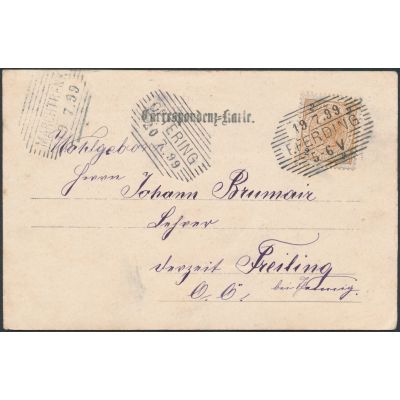 Correspondenz-Karte.
MARCHTRENK
7.99
OFTERING
20.7.99
19.7.99
EFERDING
5-6V
Wohlgeboren
Herrn Johann Brumair
Lehrer
derzeit Freiling
O. Ö. bei